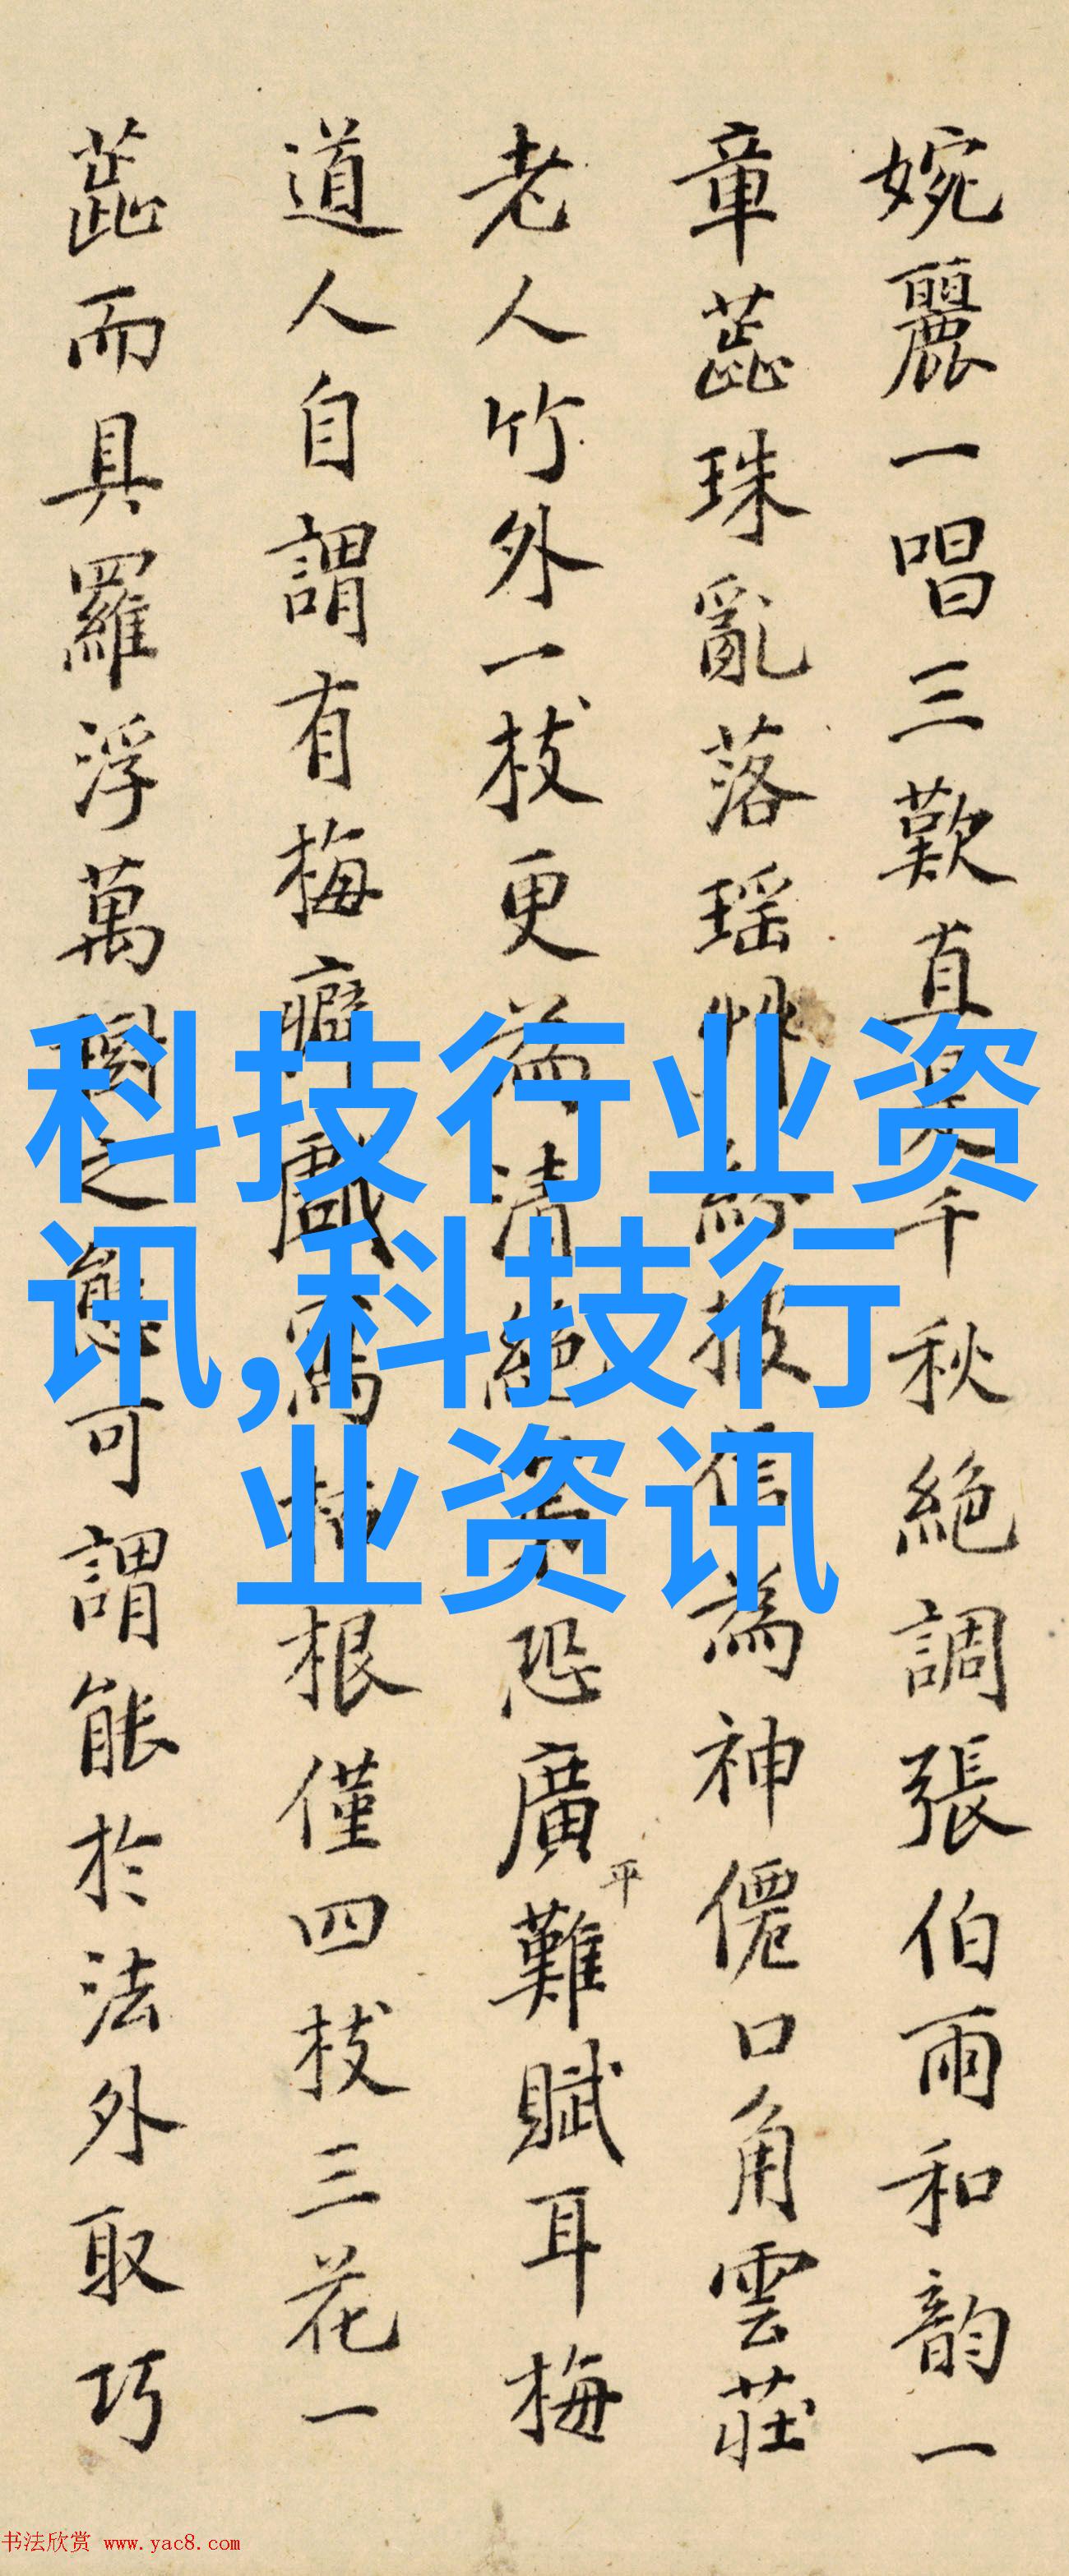 婉麗一唱三歎直是千秋絕調張伯雨和韵一
章蕋珠亂落瑶艸紛披信為神僊口角雲莊
老人竹外一枝更為清絕恐廣平難賦耳梅
道人自謂有梅癖戲寫枯根僅四枝三花一
蕋而具羅浮萬樹之態可謂能於法外取巧
科技行业资
讯,科技行
业资讯
书法欣赏 www.yac8.com